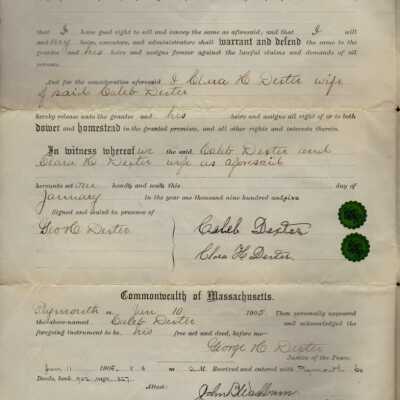 that I have good right to sell and convey the same as aforesaid; and that I will
and my heirs, executors, and administrators shall warrant and defend the same to the
grantee and his heirs and assigns forever against the lawful claims and demands of all
persons.
And for the consideration aforesaid I Clara H Dexter wife
of said Caleb Dexter
hereby release unto the grantee and his heirs and assigns all right of or to both
dower and homestead in the granted premises, and all other rights and interests therein.
In witness whereof we the said Caleb Dexter and
Clara H Dexter wife as aforesaid
hereunto set our hands and seals this day of
January in the year one thousand nine hundred and five
Signed and sealed in presence of
Geo H Dexter
Caleb Dexter
Clara H Dexter
Commonwealth of Massachusetts.
Plymouth ss. Jan 10 1905 Then personally appeared
the above-named Caleb Dexter and acknowledged the
foregoing instrument to be his free act and deed, before me—
George H Dexter
Justice of the Peace.
Jan 11 1905, M. Received and entered with Plymouth Co
Deeds, book
Attest:
John B Washburn